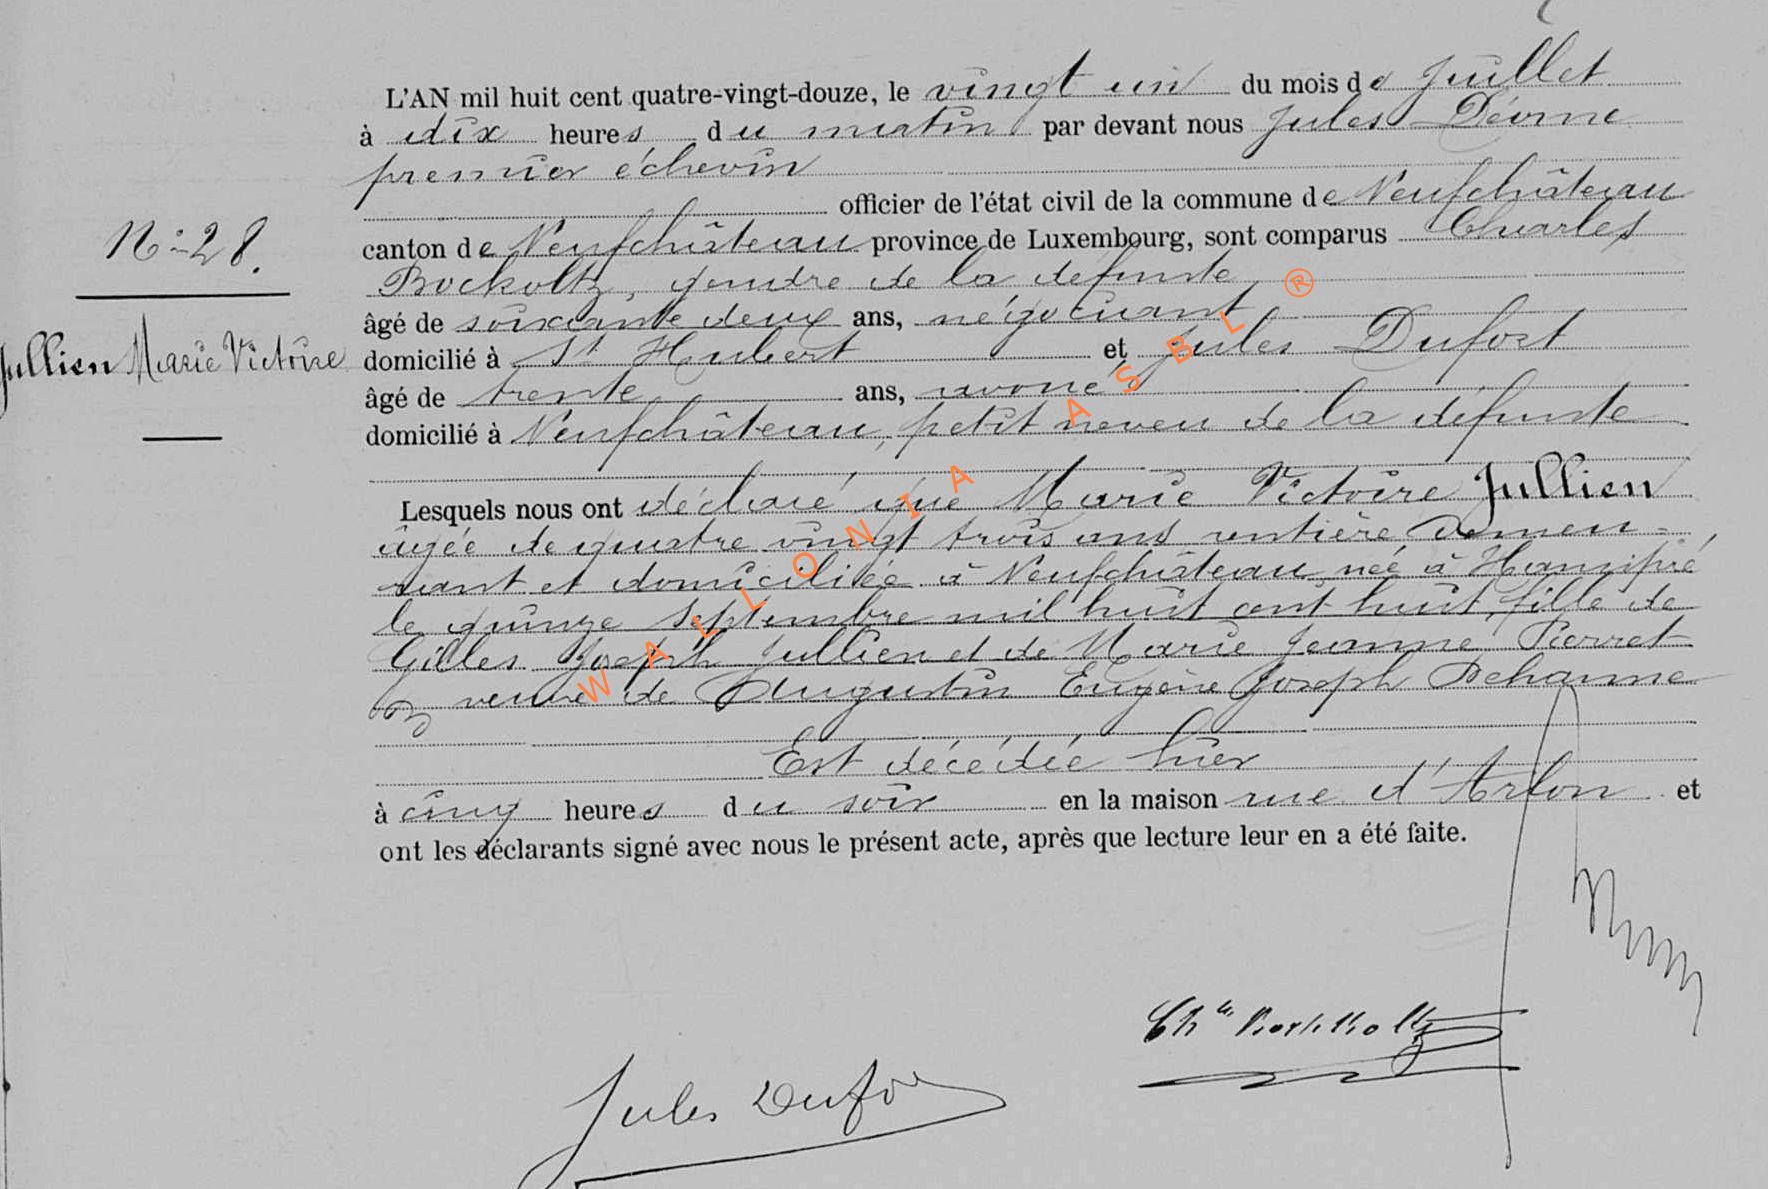 L'AN mil huit cent quatre-vingt-douze, le vingt un du mois de Juillet
à dix heures du matin par devant nous Jules
premier échevin
officier de l'état civil de la commune de Neufchâteau
N° 28.
canton de Neufchâteau province de Luxembourg, sont comparus Charles
Bockoltz, gendre de la défunte
âgé de soixante deux ans, négociant
Jullien Marie Victoire
domicilié à St Hubert et Jules Dufort
âgé de trente ans, avoué,
domicilié à Neufchâteau, petit neveu de la défunte
Lesquels nous ont déclaré que Marie Victoire Jullien
âgée de quatre vingt trois ans rentière demeu-
rant et domiciliée à Neufchâteau, née à Hamipré
le quinze Septembre mil huit cent huit, fille de
Gilles Joseph Jullien et de Marie Jeanne Pierret
veuve de Augustin Eugène Joseph Dehanne
Est décédée hier
à cinq heures du soir en la maison rue d'Arlon et
ont les déclarants signé avec nous le présent acte, après que lecture leur en a été faite.
Jules Dufo
WALLONIA ASBL ®